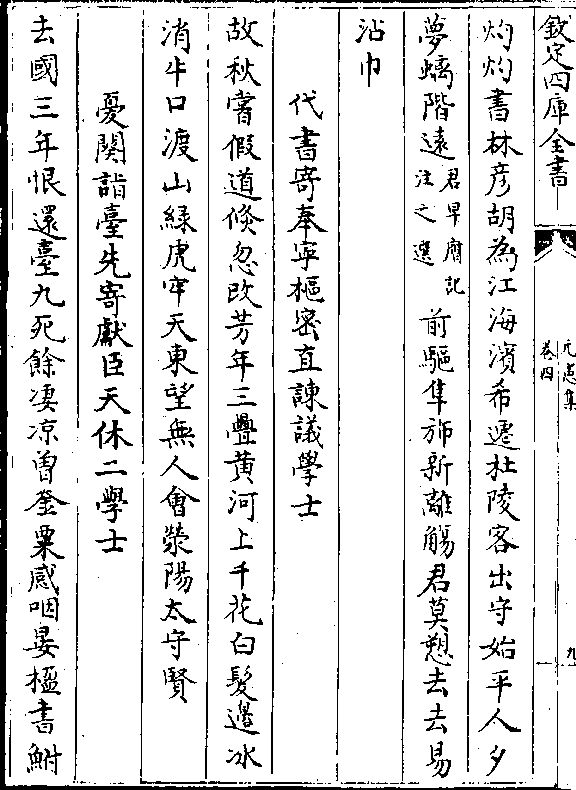 欽定四庫全書
元憲集
卷四
九
灼灼書林彦胡為江海濱希遷杜陵客出守始平人夕
夢螭階遠君早膺記注之選前驅隼旆新離觴君莫愬去去易
沾巾
代書寄奉寧樞密直諫議學士
故秋嘗假道倐忽改芳年三疊黄河上千花白髮邉冰
消牛口渡山緑虎牢天東望無人會滎陽太守賢
憂闋詣臺先寄獻臣天休二學士
去國三年恨還臺九死餘凄凉曽荃粟感咽晏楹書鮒